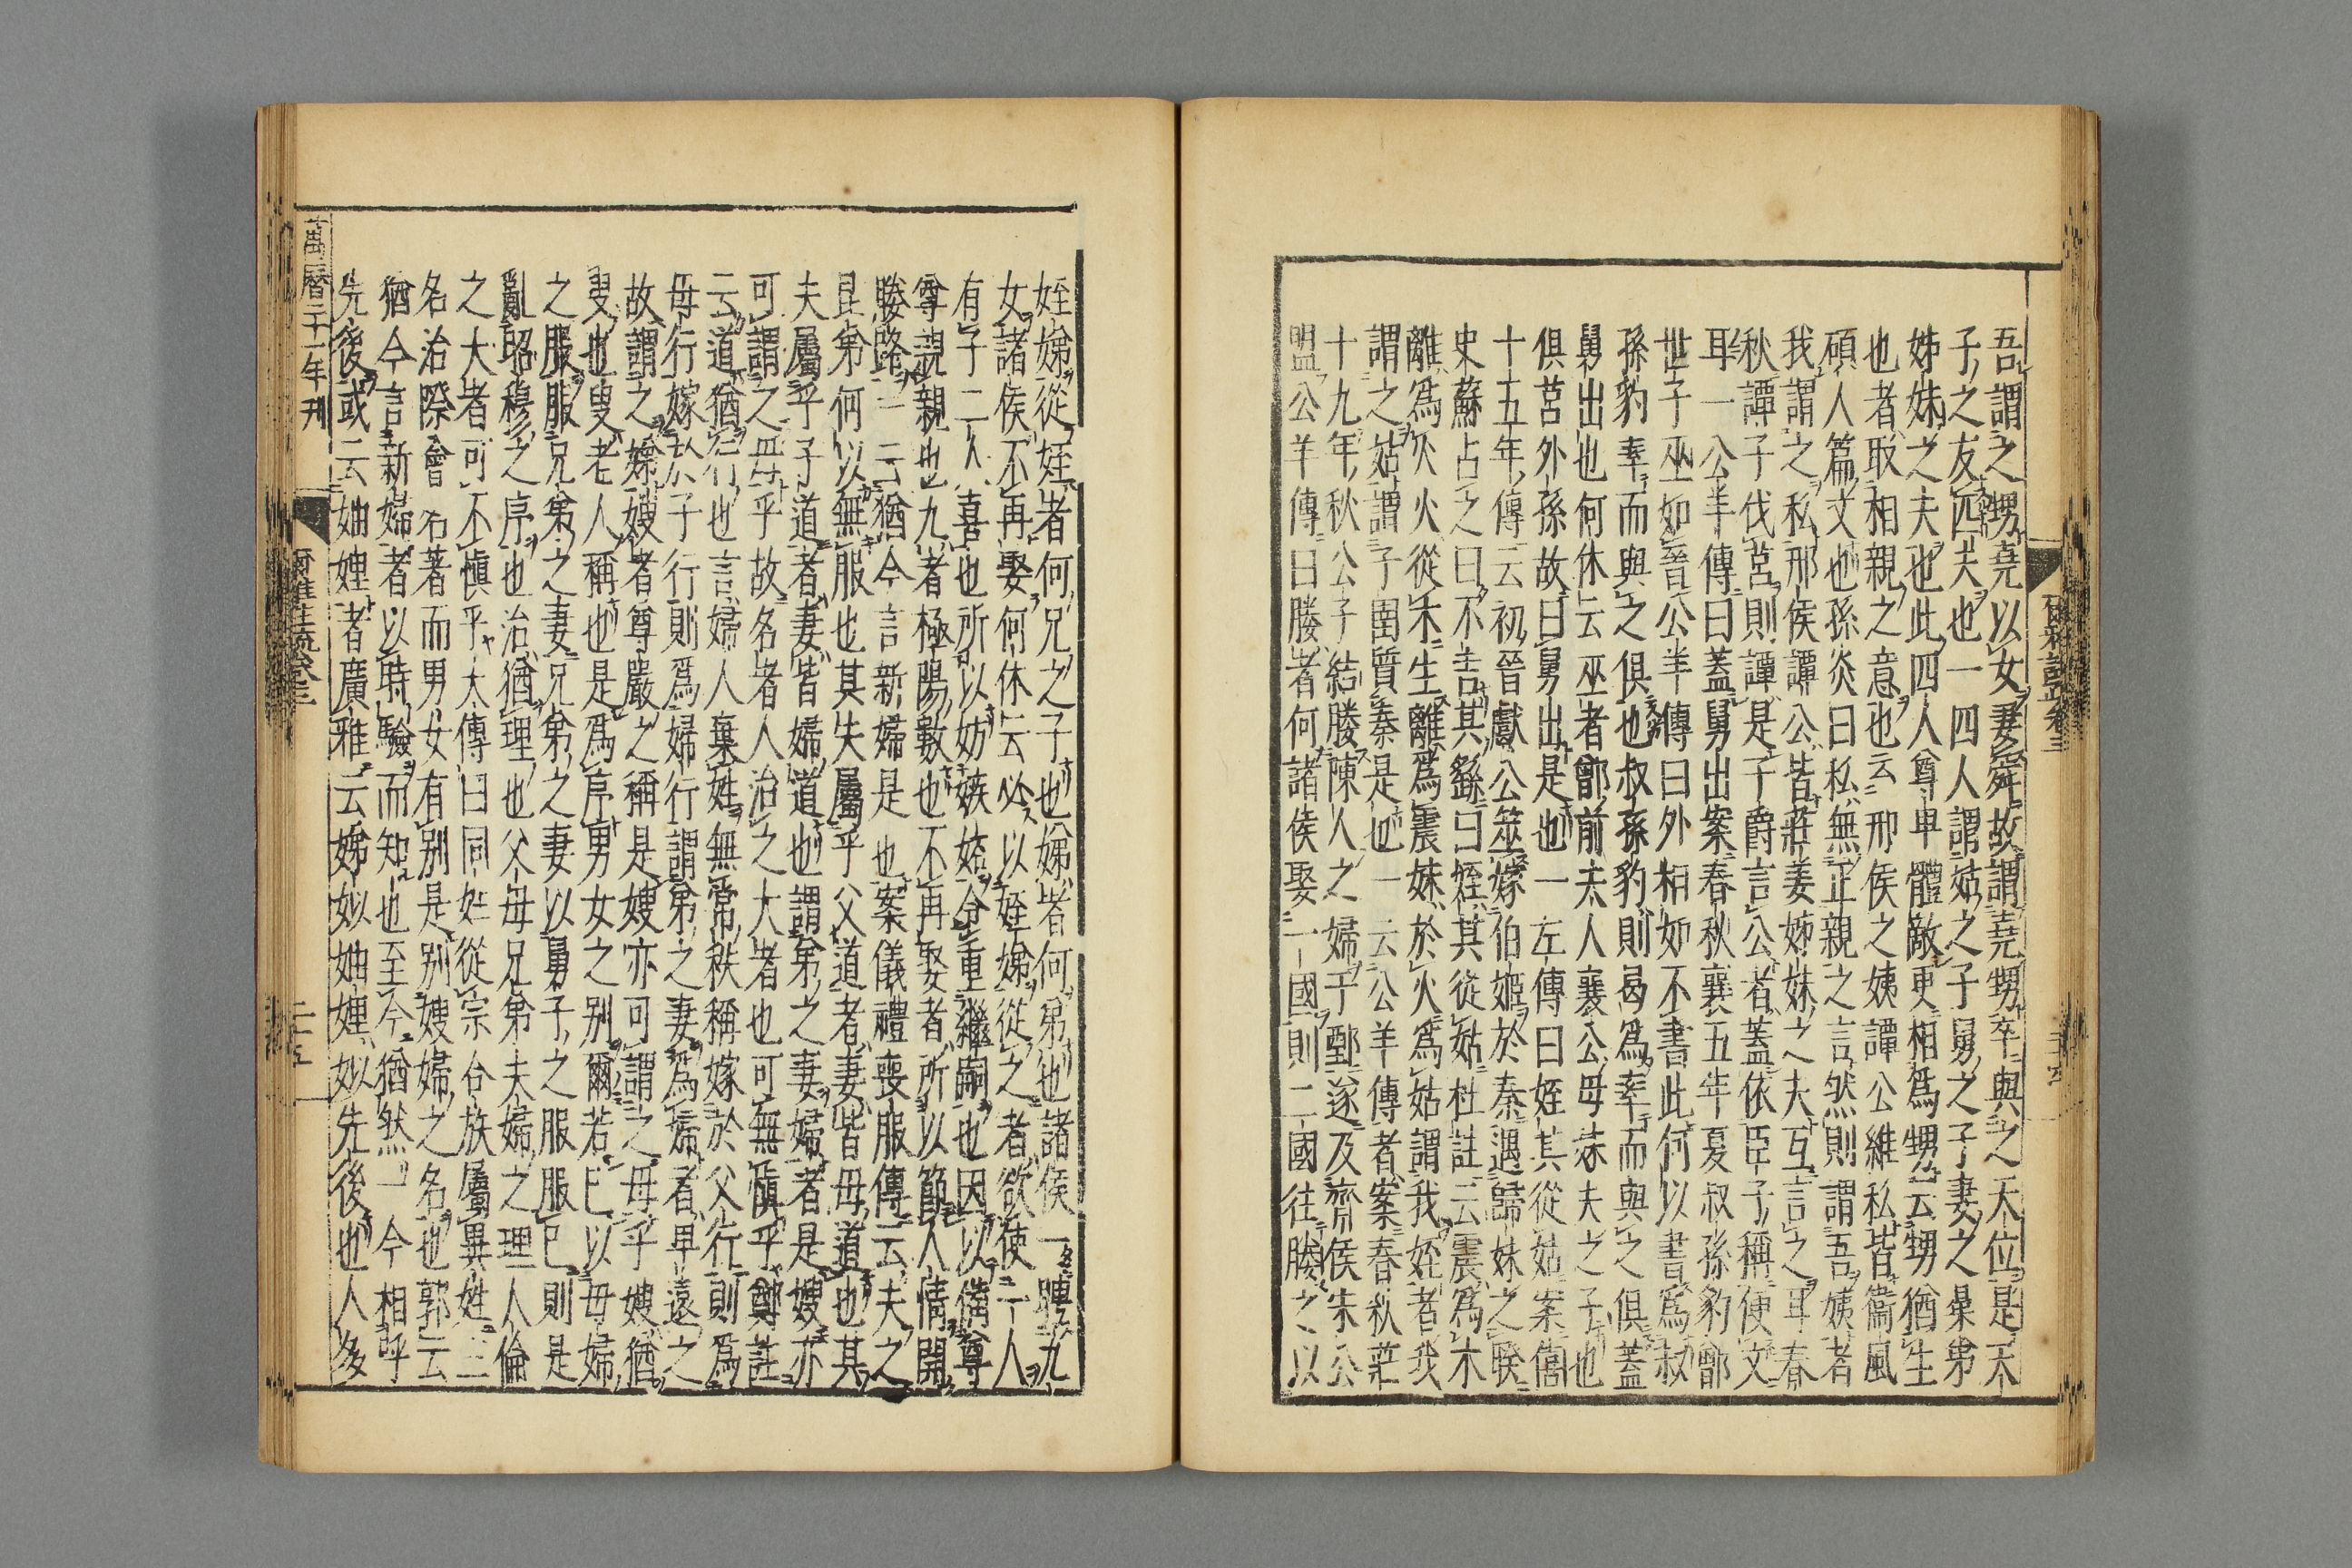 吾謂之甥堯以女妻舜故謂堯甥卒與之天位是天
子之友匹夫也一四人謂姑之子舅之子妻之晜弟
姊妹之夫也此四人尊卑體敵更相爲甥云甥猶生
也者取相親之意也云邢侯之姨譚公維私皆衞風
碩人篇文也孫炎曰私無正親之言然則謂吾姨者
我謂之私邢侯譚公皆莊姜姊妹之夫互言之耳春
秋譚子伐莒則譚是子爵言公者蓋依臣子稱便文
耳一公羊傳曰蓋舅出案春秋襄五年夏叔孫豹鄫
世子巫如晉公羊傳曰外相如不書此何以書爲叔
孫豹率而與之俱也叔孫豹則曷爲率而與之俱蓋
舅出也何休云巫者鄫前夫人襄公母姊夫之子也
俱莒外孫故曰舅出是也一左傳曰姪其從姑案僖
十五年傳云初晉獻公筮嫁伯姬於秦遇歸妹之睽
史蘇占之曰不吉其繇曰姪其從姑杜註云震爲木
離爲火火從木生離爲震妹於火爲姑謂我姪者我
謂之姑謂子圉質秦是也一云公羊傳者案春秋莊
十九年秋公子結媵陳人之婦于鄄遂及齊侯宋公
盟公羊傳曰媵者何諸侯娶一國則二國往媵之以
爾雅註疏卷三
姪娣從姪者何兄之子也娣者何弟也諸侯一聘九
女諸侯不再娶何休云必以姪娣從之者欲使一人
有子二人喜也所以妨嫉妬令重繼嗣也因以備尊
尊親親也九者極陽數也不再娶者所以節人情開
媵路一云猶今言新婦是也案儀禮喪服傳云夫之
昆弟何以無服也其夫屬乎父道者妻皆母道也其
夫屬乎子道者妻皆婦道也謂弟之妻婦者是嫂亦
可謂之母乎故名者人治之大者也可無愼乎鄭註
云道猶行也言婦人棄姓無常秩稱嫁於父行則爲
母行嫁於子行則爲婦行謂弟之妻爲婦者卑遠之
故謂之婦嫂者尊嚴之稱是嫂亦可謂之母乎嫂猶
叟也叟老人稱也是爲序男女之别爾若已以母婦
之服服兄弟之妻兄弟之妻以舅子之服服已則是
亂昭穆之序也治猶理也父母兄弟夫婦之理人倫
之大者可不愼乎大傳曰同姓從宗合族屬異姓主
名治際會名著而男女有别是别嫂婦之名也郭云
猶今言新婦者以時驗而知也至今猶然一今相呼
先後或云妯娌者廣雅云娣姒妯娌姒先後也人多
萬曆二十一年刊
爾雅註疏卷三
二十五